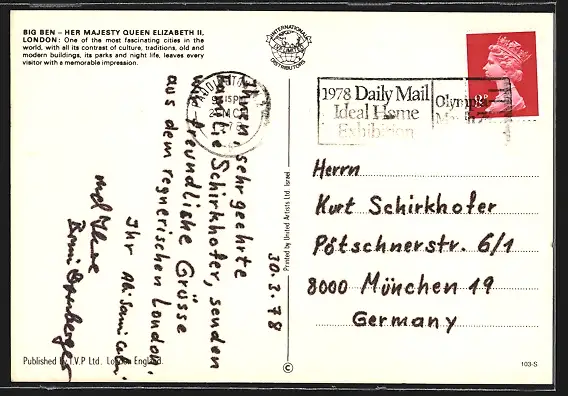 BIG BEN – HER MAJESTY QUEEN ELIZABETH II,
LONDON: One of the most fascinating cities in the
world, with all its contrast of culture, traditions, old and
modern buildings, its parks and night life, leaves every
visitor with a memorable impression.
INTERNATIONAL
DISTRIBUTORS
PADDINGTON
1978 Daily Mail
Ideal Home
Exhibition
Olympia
30.3.78
Ihnen, sehr geehrte
Familie Schirkhofer, senden
wir freundliche Grüsse
aus dem regnerischen London.
Ihr
und Ihre
Herrn
Kurt Schirkhofer
Pötschnerstr. 6/1
8000 München 19
Germany
Printed by United Artists Ltd Israel
©
Published by T.V.P Ltd. London England.
103-S